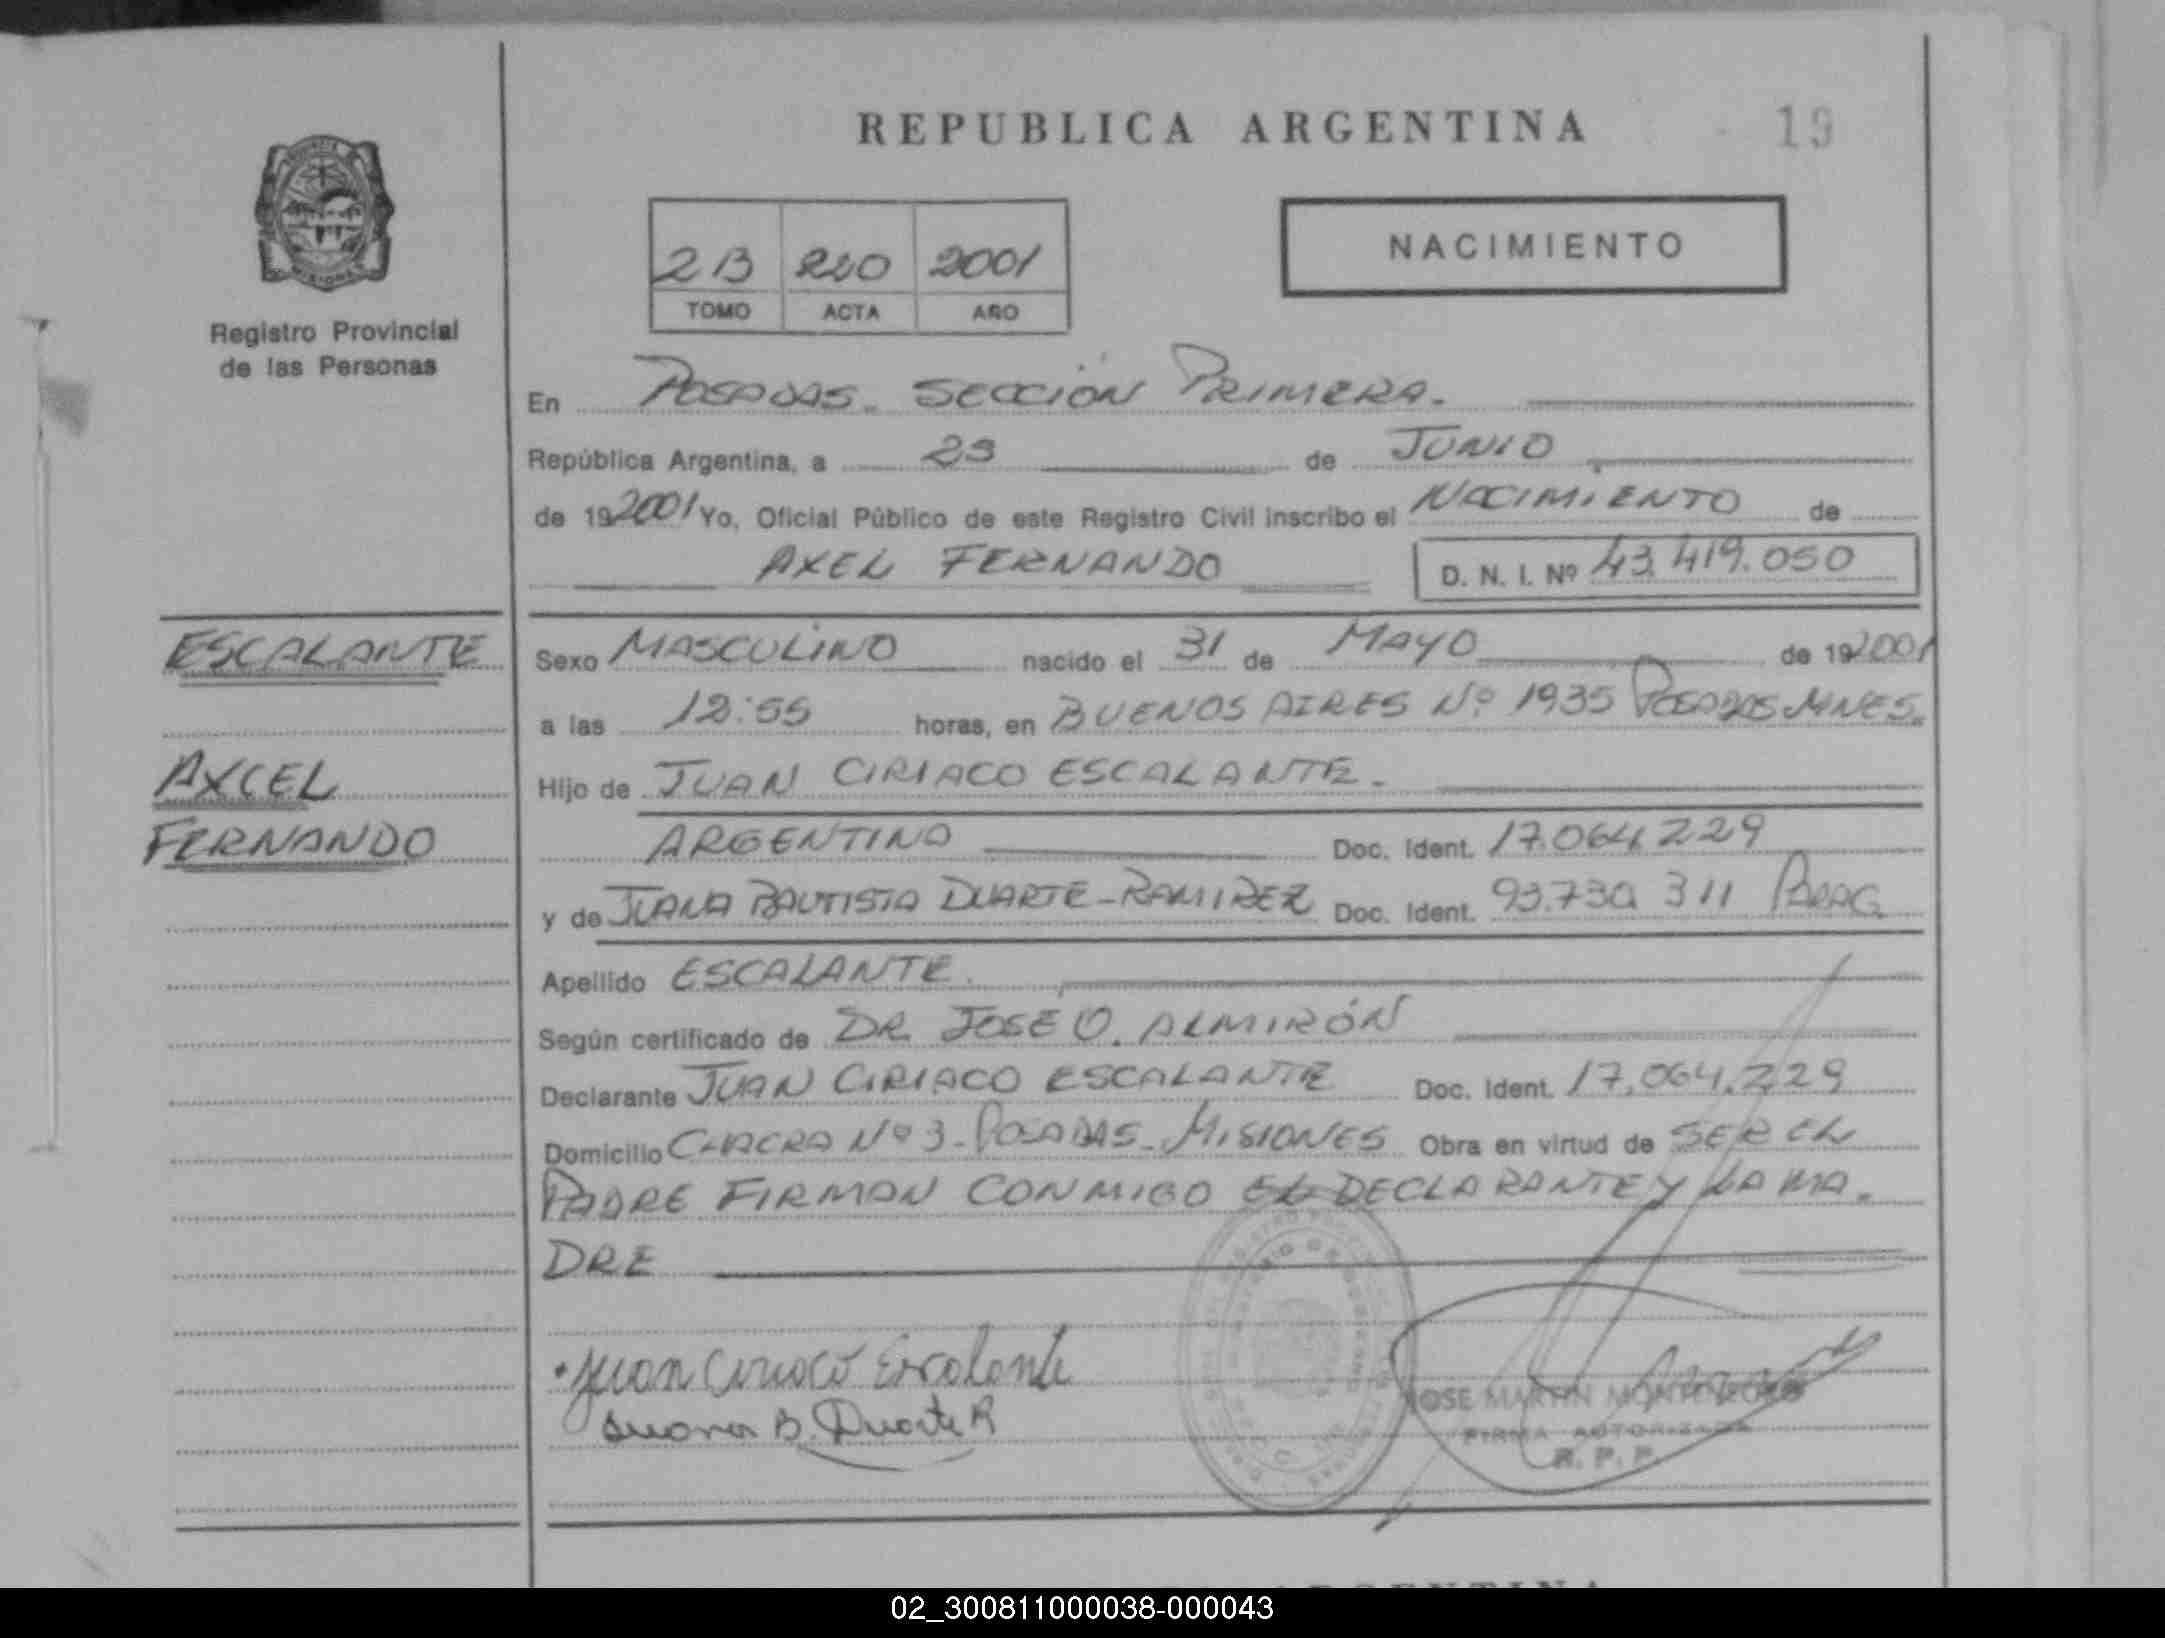 REPUBLICA ARGENTINA
19
Registro Provincial
de las Personas
2B 220 2001
TOMO ACTA AÑO
NACIMIENTO
En POSADAS. SECCIÓN PRIMERA.
República Argentina, a 29 de JUNIO
de 192001 Yo, Oficial Público de este Registro Civil inscribo el NACIMIENTO de
AXEL FERNANDO D. N. I. Nº 43.419.050
ESCALANTE
AXCEL
FERNANDO
Sexo MASCULINO nacido el 31 de MAYO de 192001
a las 12:55 horas, en BUENOS AIRES Nº 1935 POSADAS MNES.
Hijo de JUAN CIRIACO ESCALANTE.
ARGENTINO Doc. Ident. 17.064.229
y de JUANA BAUTISTA DUARTE-RAMIREZ Doc. Ident. 93.730.311 PARAG.
Apellido ESCALANTE.
Según certificado de DR JOSÉ O. ALMIRÓN
Declarante JUAN CIRIACO ESCALANTE Doc. Ident. 17.064.229
Domicilio CHACRA Nº 3-POSADAS-MISIONES Obra en virtud de SER EL
PADRE FIRMAN CONMIGO EL DECLARANTE Y LA MA.
DRE
Juan Ciriaco Escalante
Juana B. Duarte R
JOSE MARTIN
FIRMA AUTORIZADA
R. P. P.
ARGENTINA
02_300811000038-000043